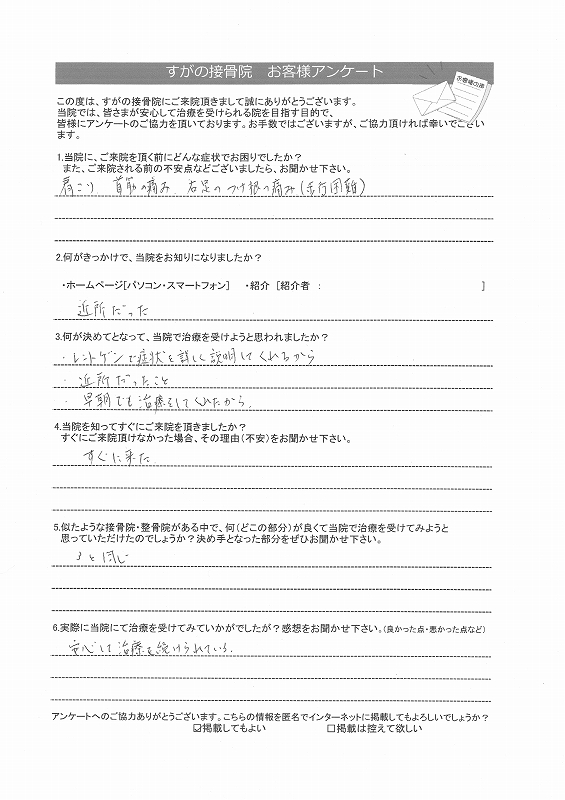 すがの接骨院 お客様アンケート
お客様の声
この度は、すがの接骨院にご来院頂きまして誠にありがとうございます。
当院では、皆さまが安心して治療を受けられる院を目指す目的で、
皆様にアンケートのご協力を頂いております。お手数ではございますが、ご協力頂ければ幸いでござい
ます。
1.当院に、ご来院を頂く前にどんな症状でお困りでしたか?
また、ご来院される前の不安点などございましたら、お聞かせ下さい。
肩こり 首筋の痛み 右足のつけ根の痛み(歩行困難)
2.何がきっかけで、当院をお知りになりましたか?
・ホームページ[パソコン・スマートフォン] ・紹介 [紹介者 : ]
近所だった
3.何が決めてとなって、当院で治療を受けようと思われましたか?
・レントゲンで症状を詳しく説明してくれるから
・近所だったこと
・早朝でも治療をしてくれたから.
4.当院を知ってすぐにご来院を頂きましたか?
すぐにご来院頂けなかった場合、その理由(不安)をお聞かせ下さい。
すぐに来た
5.似たような接骨院・整骨院がある中で、何(どこの部分)が良くて当院で治療を受けてみようと
思っていただけたのでしょうか?決め手となった部分をぜひお聞かせ下さい。
3と同じ
6.実際に当院にて治療を受けてみていかがでしたが?感想をお聞かせ下さい。(良かった点・悪かった点など)
安心して治療を続けられている.
アンケートへのご協力ありがとうございます。こちらの情報を匿名でインターネットに掲載してもよろしいでしょうか?
☑掲載してもよい □掲載は控えて欲しい